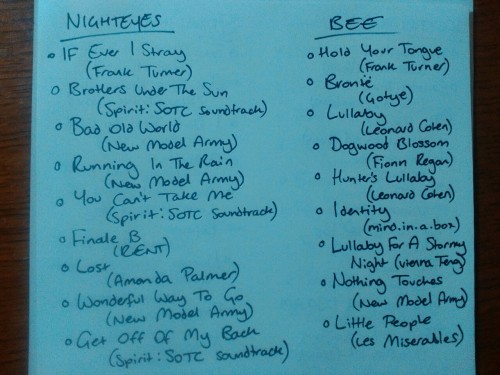 NIGHTEYES
IF Ever I Stray
(Frank Turner)
Brothers Under The Sun
(Spirit: SOTC soundtrack)
Bad Old World
(New Model Army)
Running In The Rain
(New Model Army)
You Can't Take Me
(Spirit: SOTC soundtrack)
Finale B
(RENT)
Lost
(Amanda Palmer)
Wonderful Way To Go
(New Model Army)
Get Off Of My Back
(Spirit: SOTC soundtrack)
BEE
Hold Your Tongue
(Frank Turner)
Brontë
(Gotye)
Lullaby
(Leonard Cohen)
Dogwood Blossom
(Fionn Regan)
Hunter's Lullaby
(Leonard Cohen)
Identity
(mind.in.a.box)
Lullaby For A Stormy
Night (Vienna Teng)
Nothing Touches
(New Model Army)
Little People
(Les Miserables)